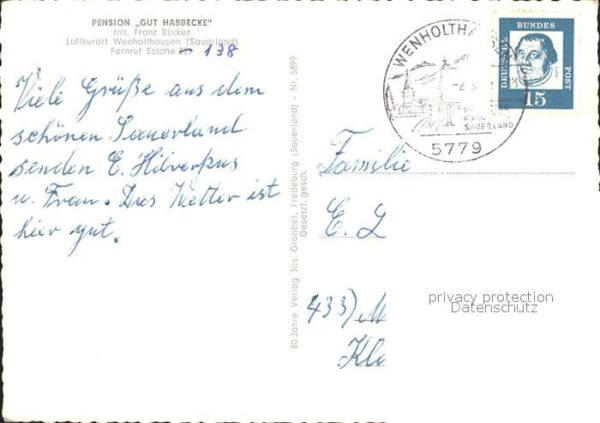 PENSION „GUT HABBECKE"
Inh. Franz Bücker
Luftkurort Wenholthausen (Sauerland)
Fernruf Eslohe 138
Viele Grüße aus dem
schönen Sauerland
senden E. Hilverkus
u. Frau. Das Wetter ist
hier gut.
80 Jahre Verlag Jos. Grobbel, Fredeburg (Sauerland) - Nr. 5899
Gesetzl. gesch.
WENHOLTHAUSEN
SAUERLAND
5779
DEUTSCHE
BUNDES
POST
15
Familie
E. L
433) M
Kle
privacy protection
Datenschutz